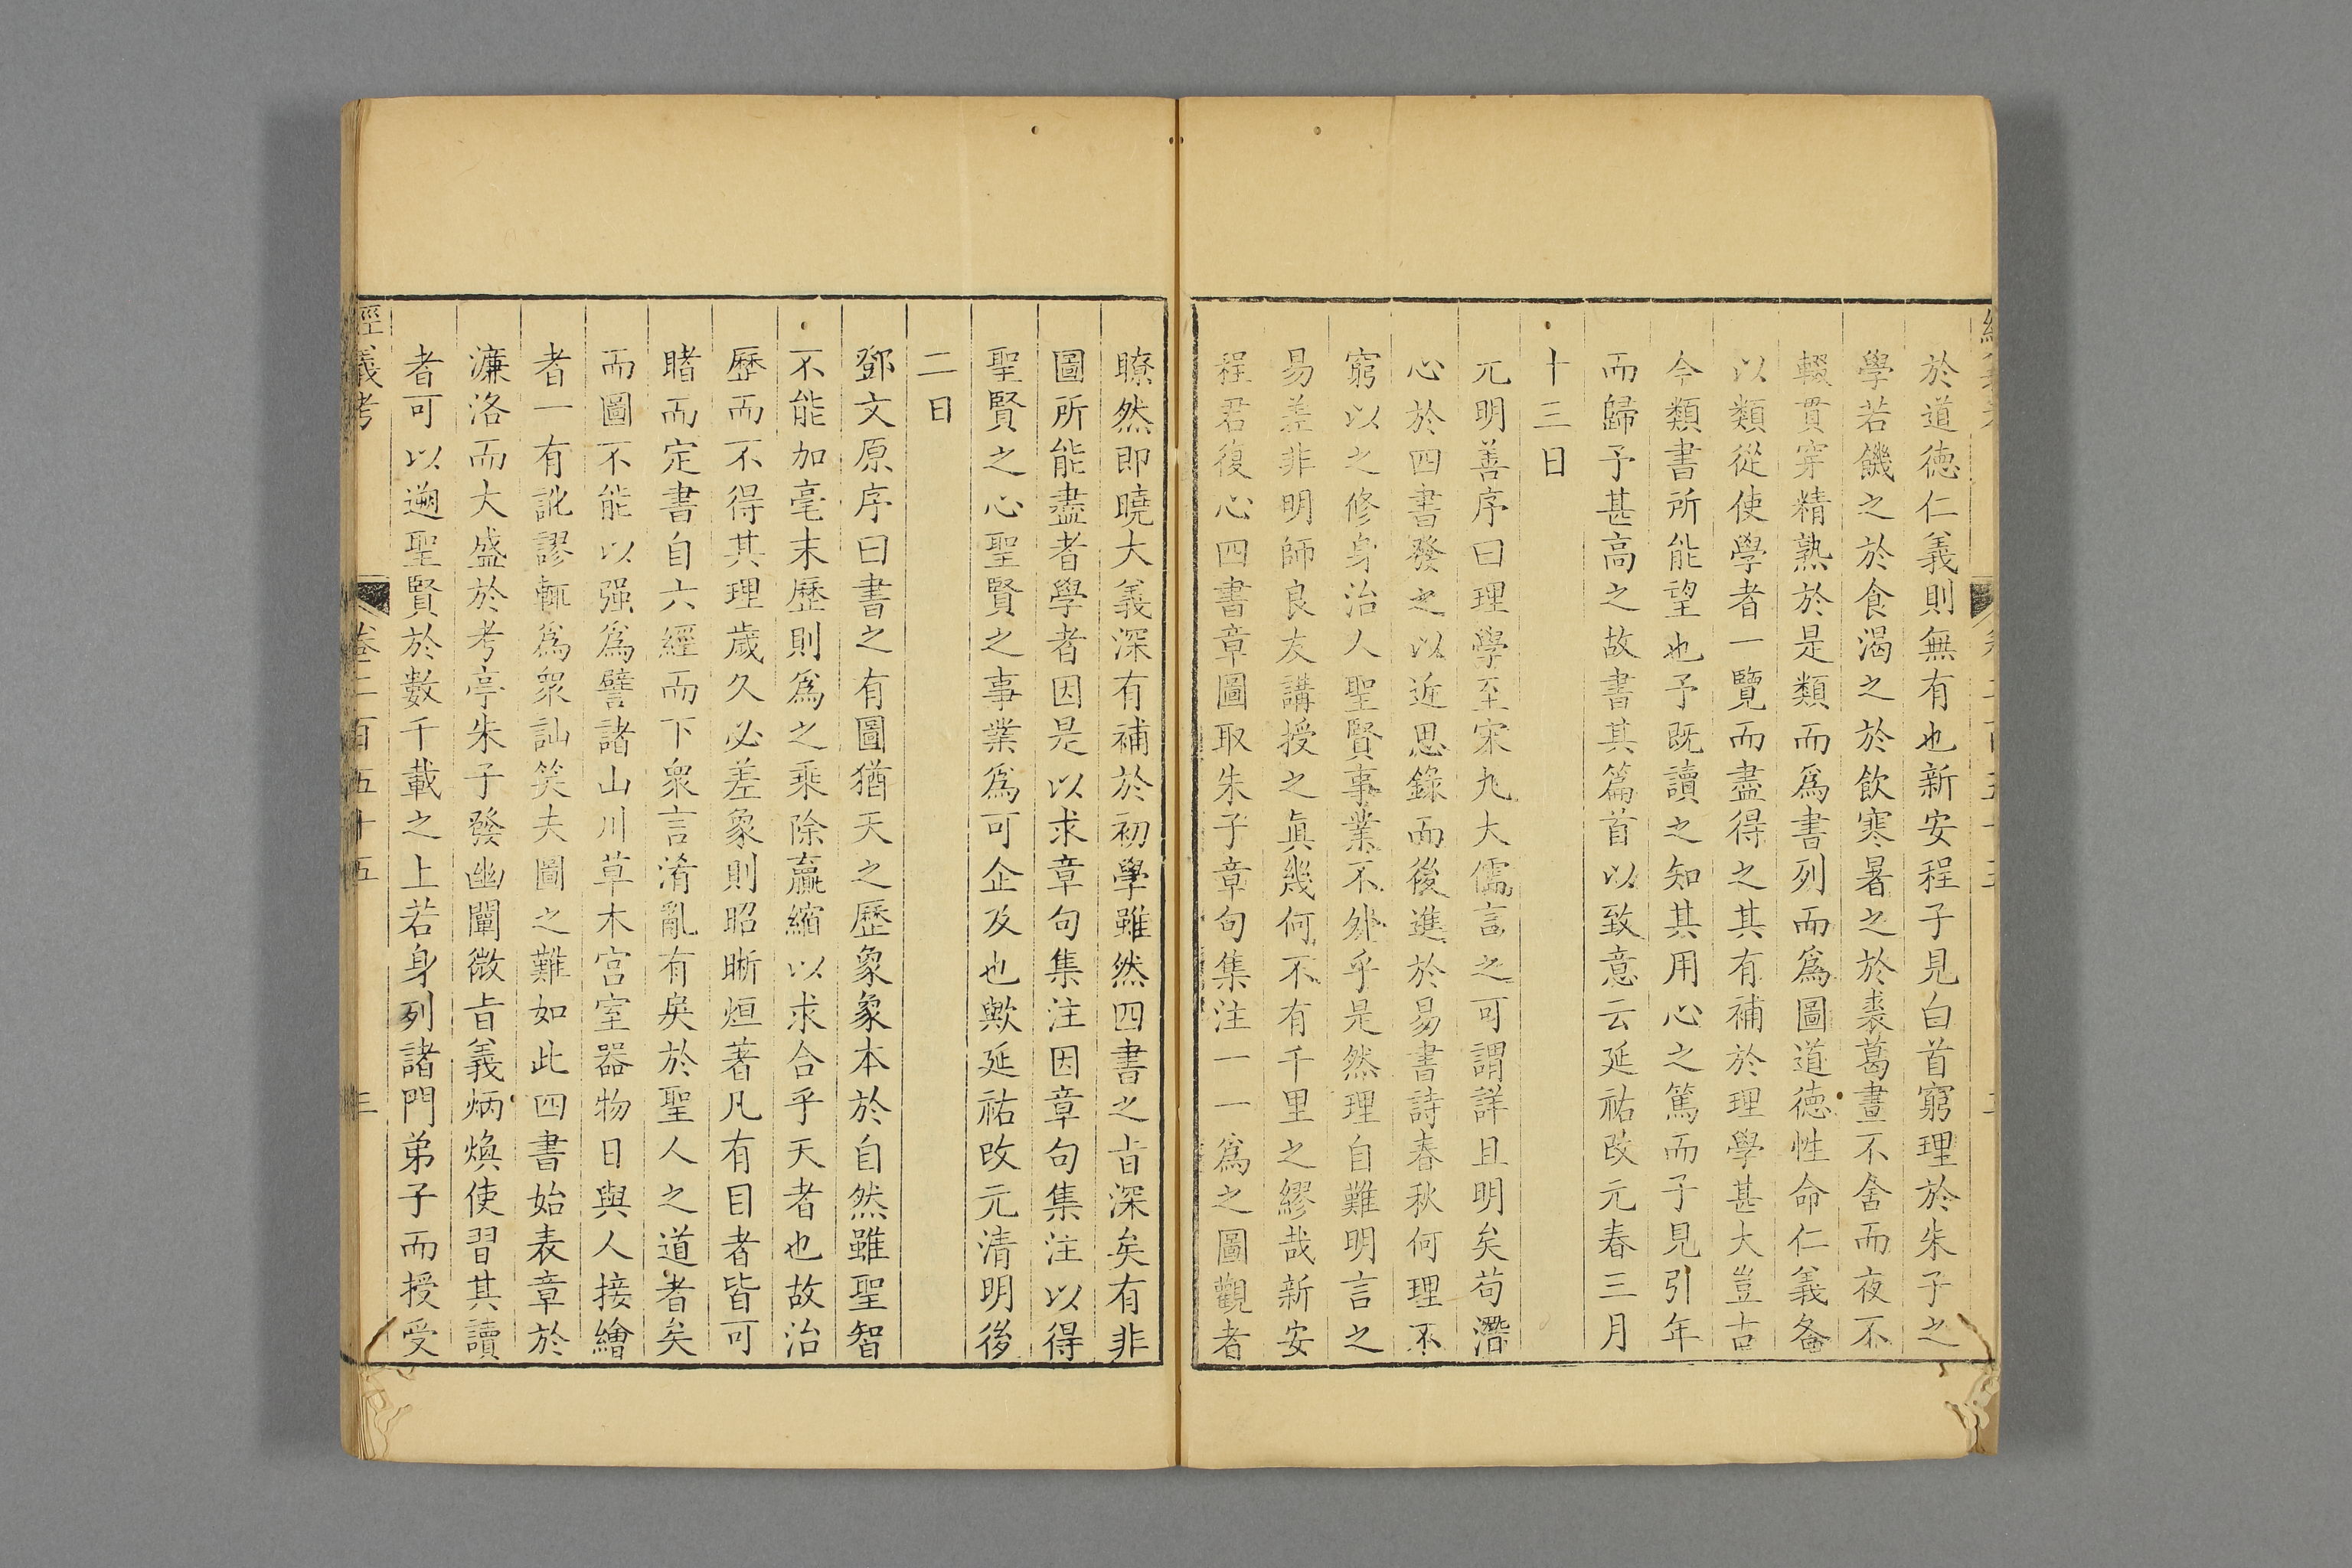 於道徳仁義則無有也新安程子見白首窮理於朱子之
學若饑之於食渴之於飲寒暑之於裘葛晝不舍而夜不
輟貫穿精熟於是類而爲書列而爲圖道徳性命仁義各
以類從使學者一覽而盡得之其有補於理學甚大豈古
今類書所能望也予既讀之知其用心之篤而子見引年
而歸予甚高之故書其篇首以致意云延祐改元春三月
十三日
元明善序曰理學至宋九大儒言之可謂詳且明矣苟潛
心於四書發之以近思錄而後進於易書詩春秋何理不
窮以之修身治人聖賢事業不外乎是然理自難明言之
易差非明師良友講授之眞幾何不有千里之繆哉新安
程君復心四書章圖取朱子章句集注一一爲之圖觀者
瞭然即曉大義深有補於初學雖然四書之㫖深矣有非
圖所能盡者學者因是以求章句集注因章句集注以得
聖賢之心聖賢之事業爲可企及也歟延祐改元清明後
二日
鄧文原序曰書之有圖猶天之歷象象本於自然雖聖智
不能加毫末歷則爲之乘除贏縮以求合乎天者也故治
歷而不得其理歲久必差象則昭晰烜著凡有目者皆可
睹而定書自六經而下衆言淆亂有矣於聖人之道者矣
而圖不能以强爲譬諸山川草木宮室器物日與人接繪
者一有訛謬輒爲衆訕笑夫圖之難如此四書始表章於
濂洛而大盛於考亭朱子發幽闡微㫖義炳煥使習其讀
者可以遡聖賢於數千載之上若身列諸門弟子而授受
經義考
卷二百五十五
三